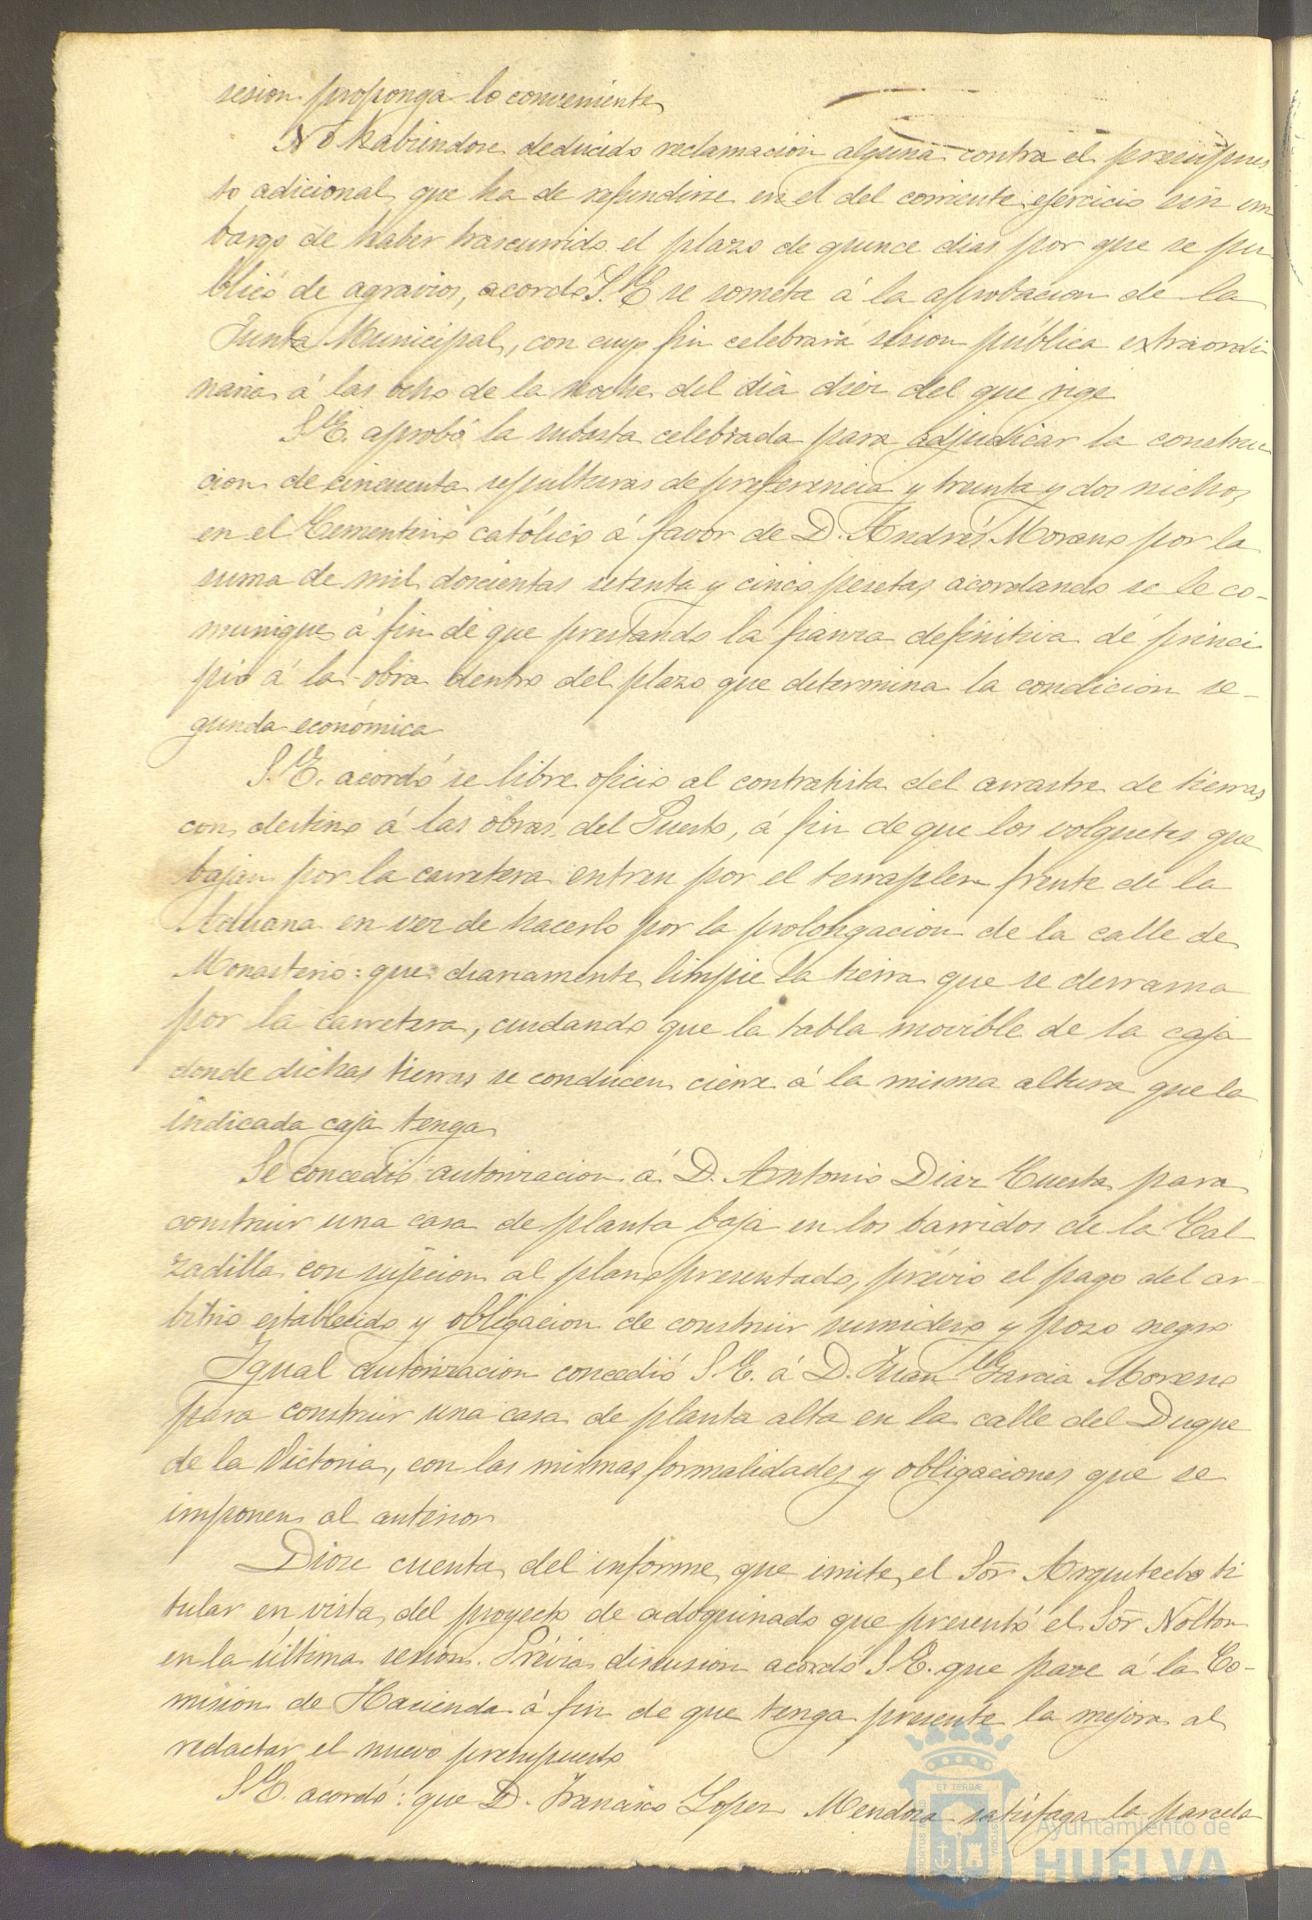 sesion proponga lo conveniente
No habiendose deducido reclamación alguna contra el presupues
to adicional que ha de refundirse en el del corriente ejercicio sin em
bargo de haber trascurrido el plazo de quince dias por que se pu
blicó de agravios, acordó S.E. se someta á la aprobacion de la
Junta Municipal, con cuyo fin celebrará sesion pública extraordi
naria á las ocho de la noche del dia diez del que rige
S.E. aprobó la subasta celebrada para adjudicar la construc
cion de cincuenta sepulturas de preferencia y treinta y dos nichos
en el Cementerio católico á favor de D. Andrés Moreno por la
suma de mil doscientas setenta y cinco pesetas acordando se le co-
munique á fin de que prestando la fianza definitiva dé princi
pio á la obra dentro del plazo que determina la condicion se-
gunda económica
S.E. acordó se libre oficio al contratista del arrastre de tierras
con destino á las obras del Puerto, á fin de que los volquetes que
bajan por la carretera entren por el terraplen frente de la
Aduana en vez de hacerlo por la prolongacion de la calle de
Monasterio: que diariamente limpie la tierra que se derrama
por la carretera, cuidando que la tabla movible de la caja
donde dichas tierras se conducen cierre á la misma altura que la
indicada caja tenga
Se concedió autorizacion á D. Antonio Diaz Cuesta para
construir una casa de planta baja en los barridos de la Cal-
zadilla con sujecion al plano presentado, prévio el pago del ar-
bitrio establecido y obligacion de construir sumidero y pozo negro
Igual autorizacion concedió S.E. á D. Juan Garcia Moreno
para construir una casa de planta alta en la calle del Duque
de la Victoria, con las mismas formalidades y obligaciones que se
imponen al anterior
Diose cuenta del informe que emite el Sor Arquitecto ti
tular en vista del proyecto de adoquinado que presentó el Sor Nolton
en la última sesion. Prévia discusion acordó S.E. que pase á la Co-
mision de Hacienda á fin de que tenga presente la mejora al
redactar el nuevo presupuesto
S.E. acordó: que D. Francisco Lopez Mendoza satisfaga la parcela
Ayuntamiento de
HUELVA